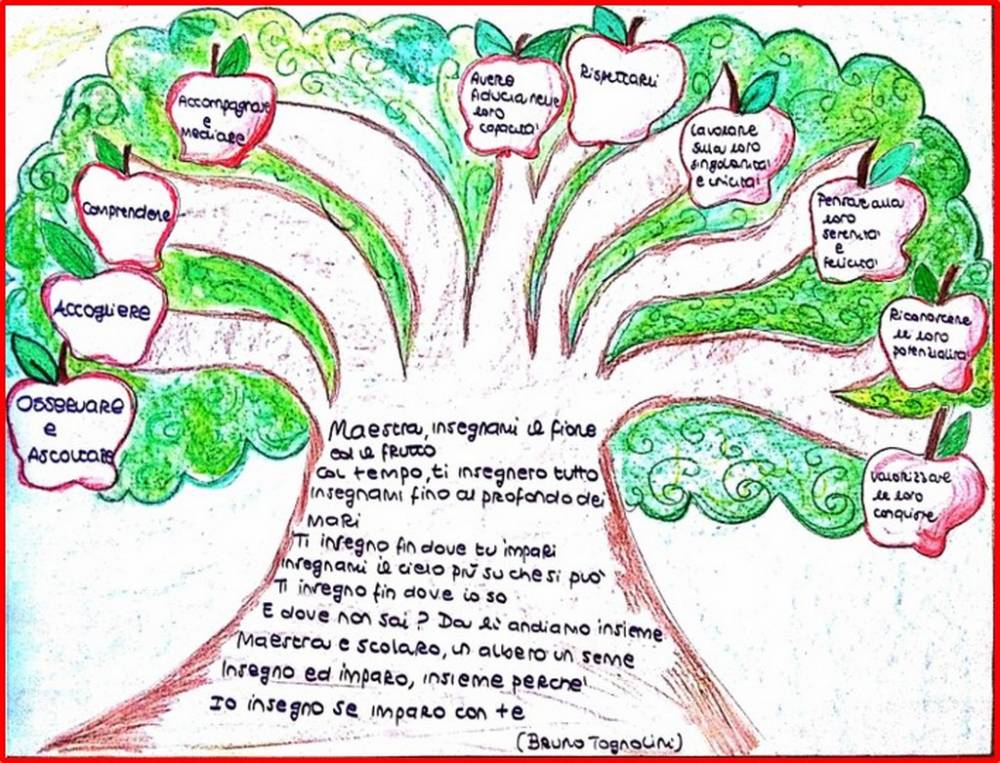 Accompagnare
e
Mediare
Avere
fiducia nelle
loro
capacità
Rispettarli
Lavorare
sulla loro
singolarità
e unicità
Pensare alla
loro
serenità
e
felicità
Comprendere
Accogliere
Riconoscere
le loro
potenzialità
Osservare
e
Ascoltare
Valorizzare
le loro
conquiste
Maestra, insegnami il fiore
ed il frutto
Col tempo, ti insegnero tutto
Insegnami fino al profondo dei
mari
Ti insegno fin dove tu impari
Insegnami il cielo più su che si può
Ti insegno fin dove io so
E dove non sai? Da lì andiamo insieme
Maestra e scolaro, un albero un seme
Insegno ed imparo, insieme perché
Io insegno se imparo con te
(Bruno Tognolini)